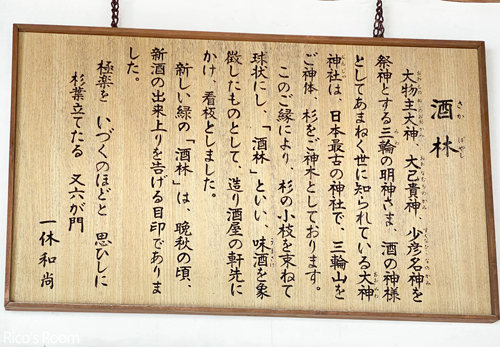 酒林
さか ばやし
大物主大神、大己貴神、少彦名神を
祭神とする三輪の明神さま、酒の神様
としてあまねく世に知られている大神
神社は、日本最古の神社で、三輪山を
ご神体、杉をご神木としております。
このご縁により、杉の小枝を束ねて
球状にし、「酒林」といい、味酒を象
徴したものとして、造り酒屋の軒先に
かけ、看板としました。
新しい緑の「酒林」は、晩秋の頃、
新酒の出来上りを告げる目印でありま
した。
極楽を いづくのほどと 思ひしに
杉葉立てたる 又六が門
一休和尚
Rico's Room